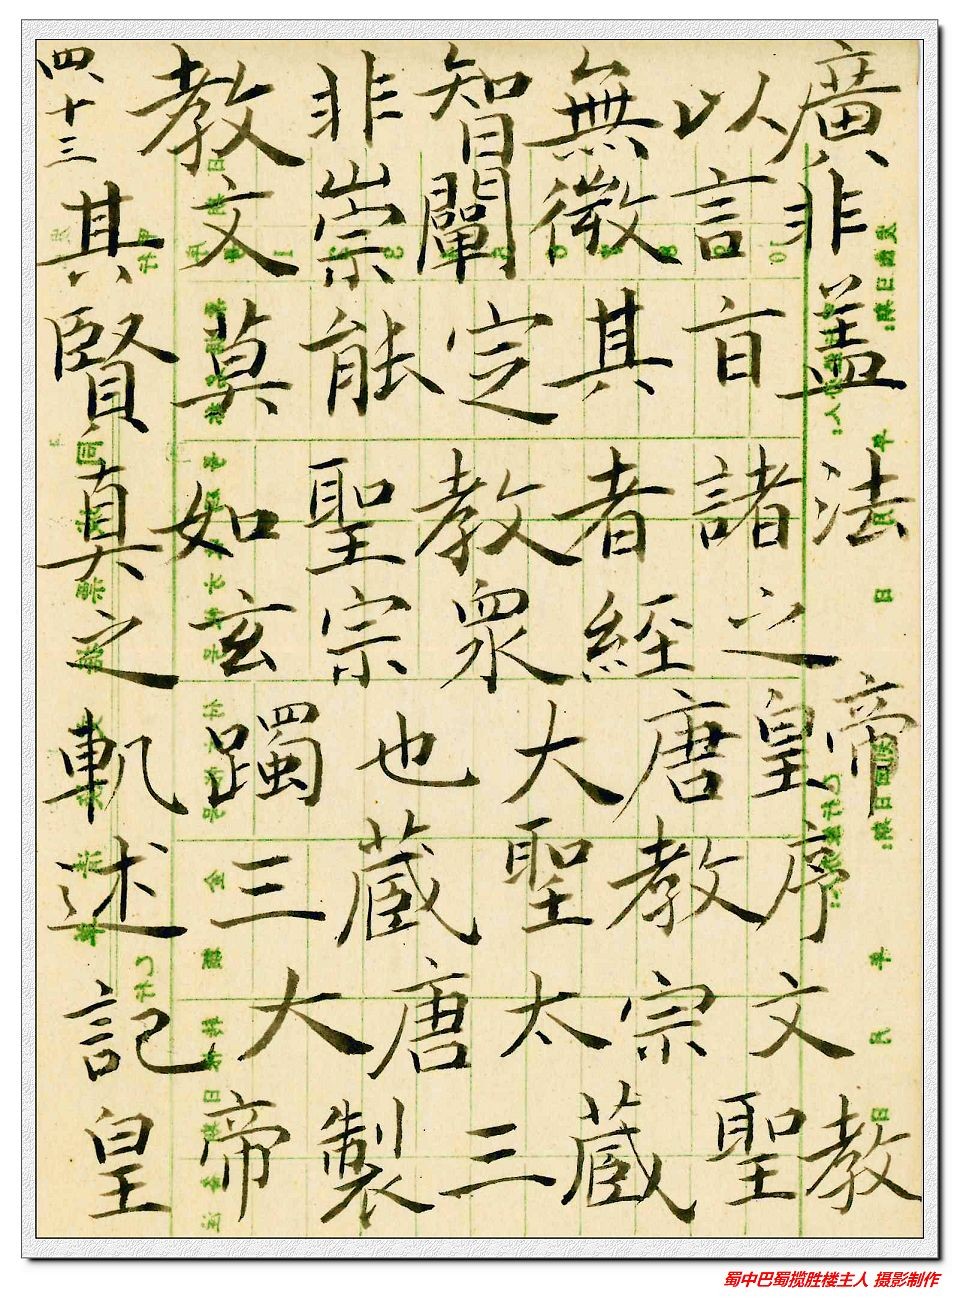 四、十三
教非智無以廣
其文崇闡微言非
賢莫能定其旨蓋
真如聖教者諸法
之玄宗眾經之
軌躅也大唐皇帝
述三藏聖教序
記大唐太宗文
皇帝製三藏聖教
蜀中巴蜀揽胜楼主人 摄影制作